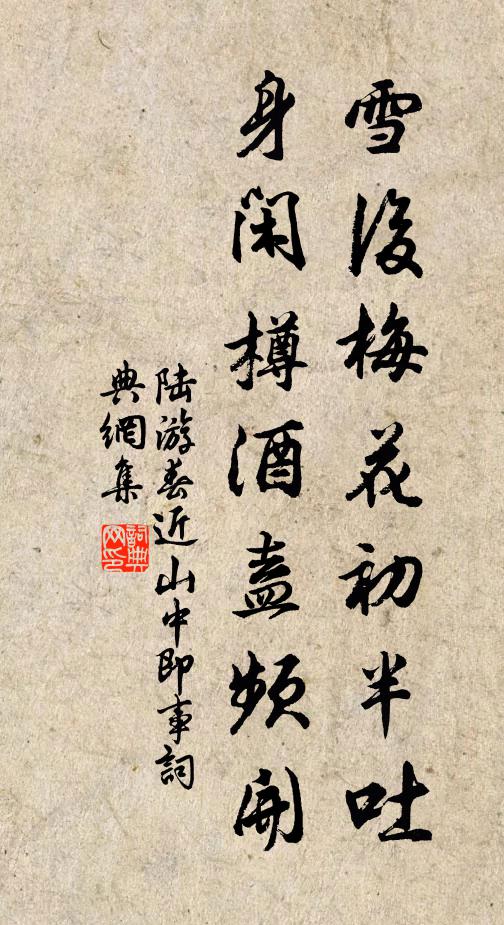 雪後梅花初半吐
身閑樽酒盍頻開
陆游春近山中即事詞
典網集
詞典
网印